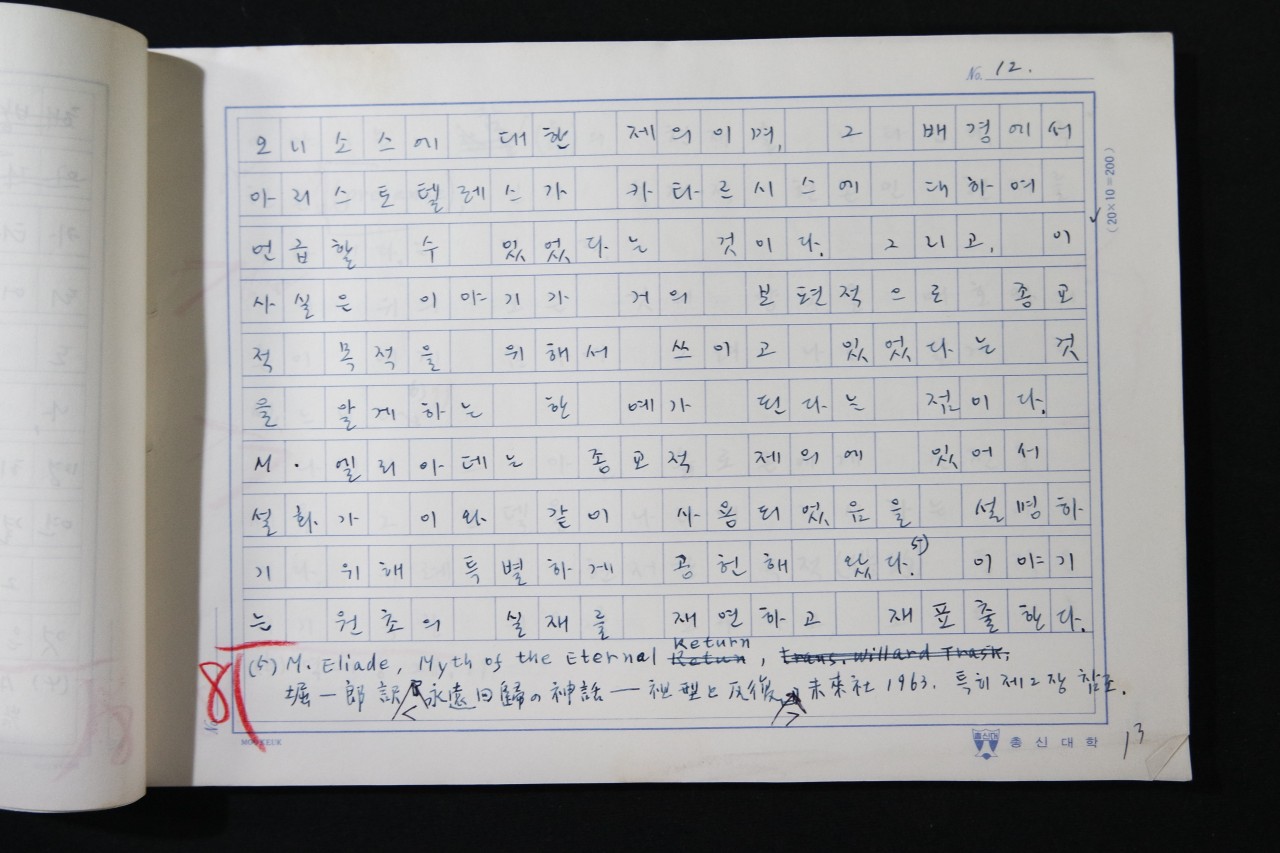 No. 12.
오니소스에 대한 제의이며, 그 배경에서
아리스토텔레스가 카타르시스에 대하여
언급할 수 있었다는 것이다. 그리고, 이
사실은 이야기가 거의 보편적으로 종교
적 목적을 위해서 쓰이고 있었다는 것
을 알게하는 한 예가 된다는 점이다.
M. 엘리아데는 종교적 제의에 있어서
설화가 이와 같이 사용되었음을 설명하
기 위해 특별하게 공헌해 왔다.5) 이야기
는 원초의 실재를 재연하고 재표출한다.
(5) M. Eliade, Myth of the Eternal Return, trans. Willard Trask,
堀一郎 訳 永遠回帰の神話 — 祖型と反復, 未來社 1963. 특히 제2장 참조.
8
(20×10=200)
No.
MOO KEUK
총신대
총신대학
13